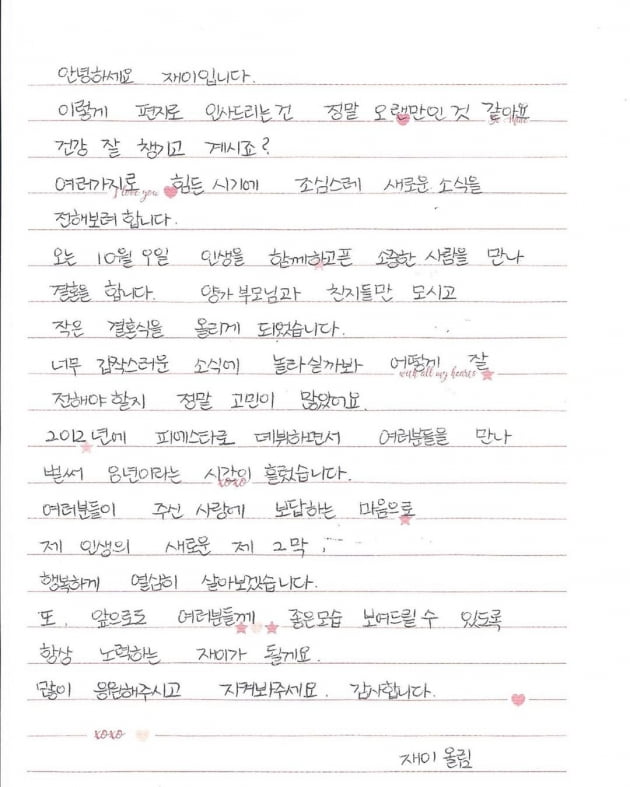 안녕하세요 재이입니다.
이렇게 편지로 인사드리는건 정말 오랜만인 것 같아요
건강 잘 챙기고 계시죠?
여러가지로 힘든 시기에 조심스레 새로운 소식을
I love you
전해보려 합니다.
오는 10월 9일 인생을 함께하고픈 소중한 사람을 만나
결혼을 합니다. 양가 부모님과 친지들만 모시고
작은 결혼식을 올리게 되었습니다.
너무 갑작스러운 소식에 놀라실까봐 어떻게 잘
with all my hearts
전해야 할지 정말 고민이 많았어요.
2012년에 피에스타로 데뷔하면서 여러분들을 만나
벌써 8년이라는 시간이 흘렀습니다.
xoxo
여러분들이 주신 사랑에 보답하는 마음으로
제 인생의 새로운 제 2막,
행복하게 열심히 살아보겠습니다.
또, 앞으로도 여러분들께 좋은모습 보여드릴 수 있도록
항상 노력하는 재이가 될게요.
많이 응원해주시고 지켜봐주세요. 감사합니다.
xoxo
재이 올림